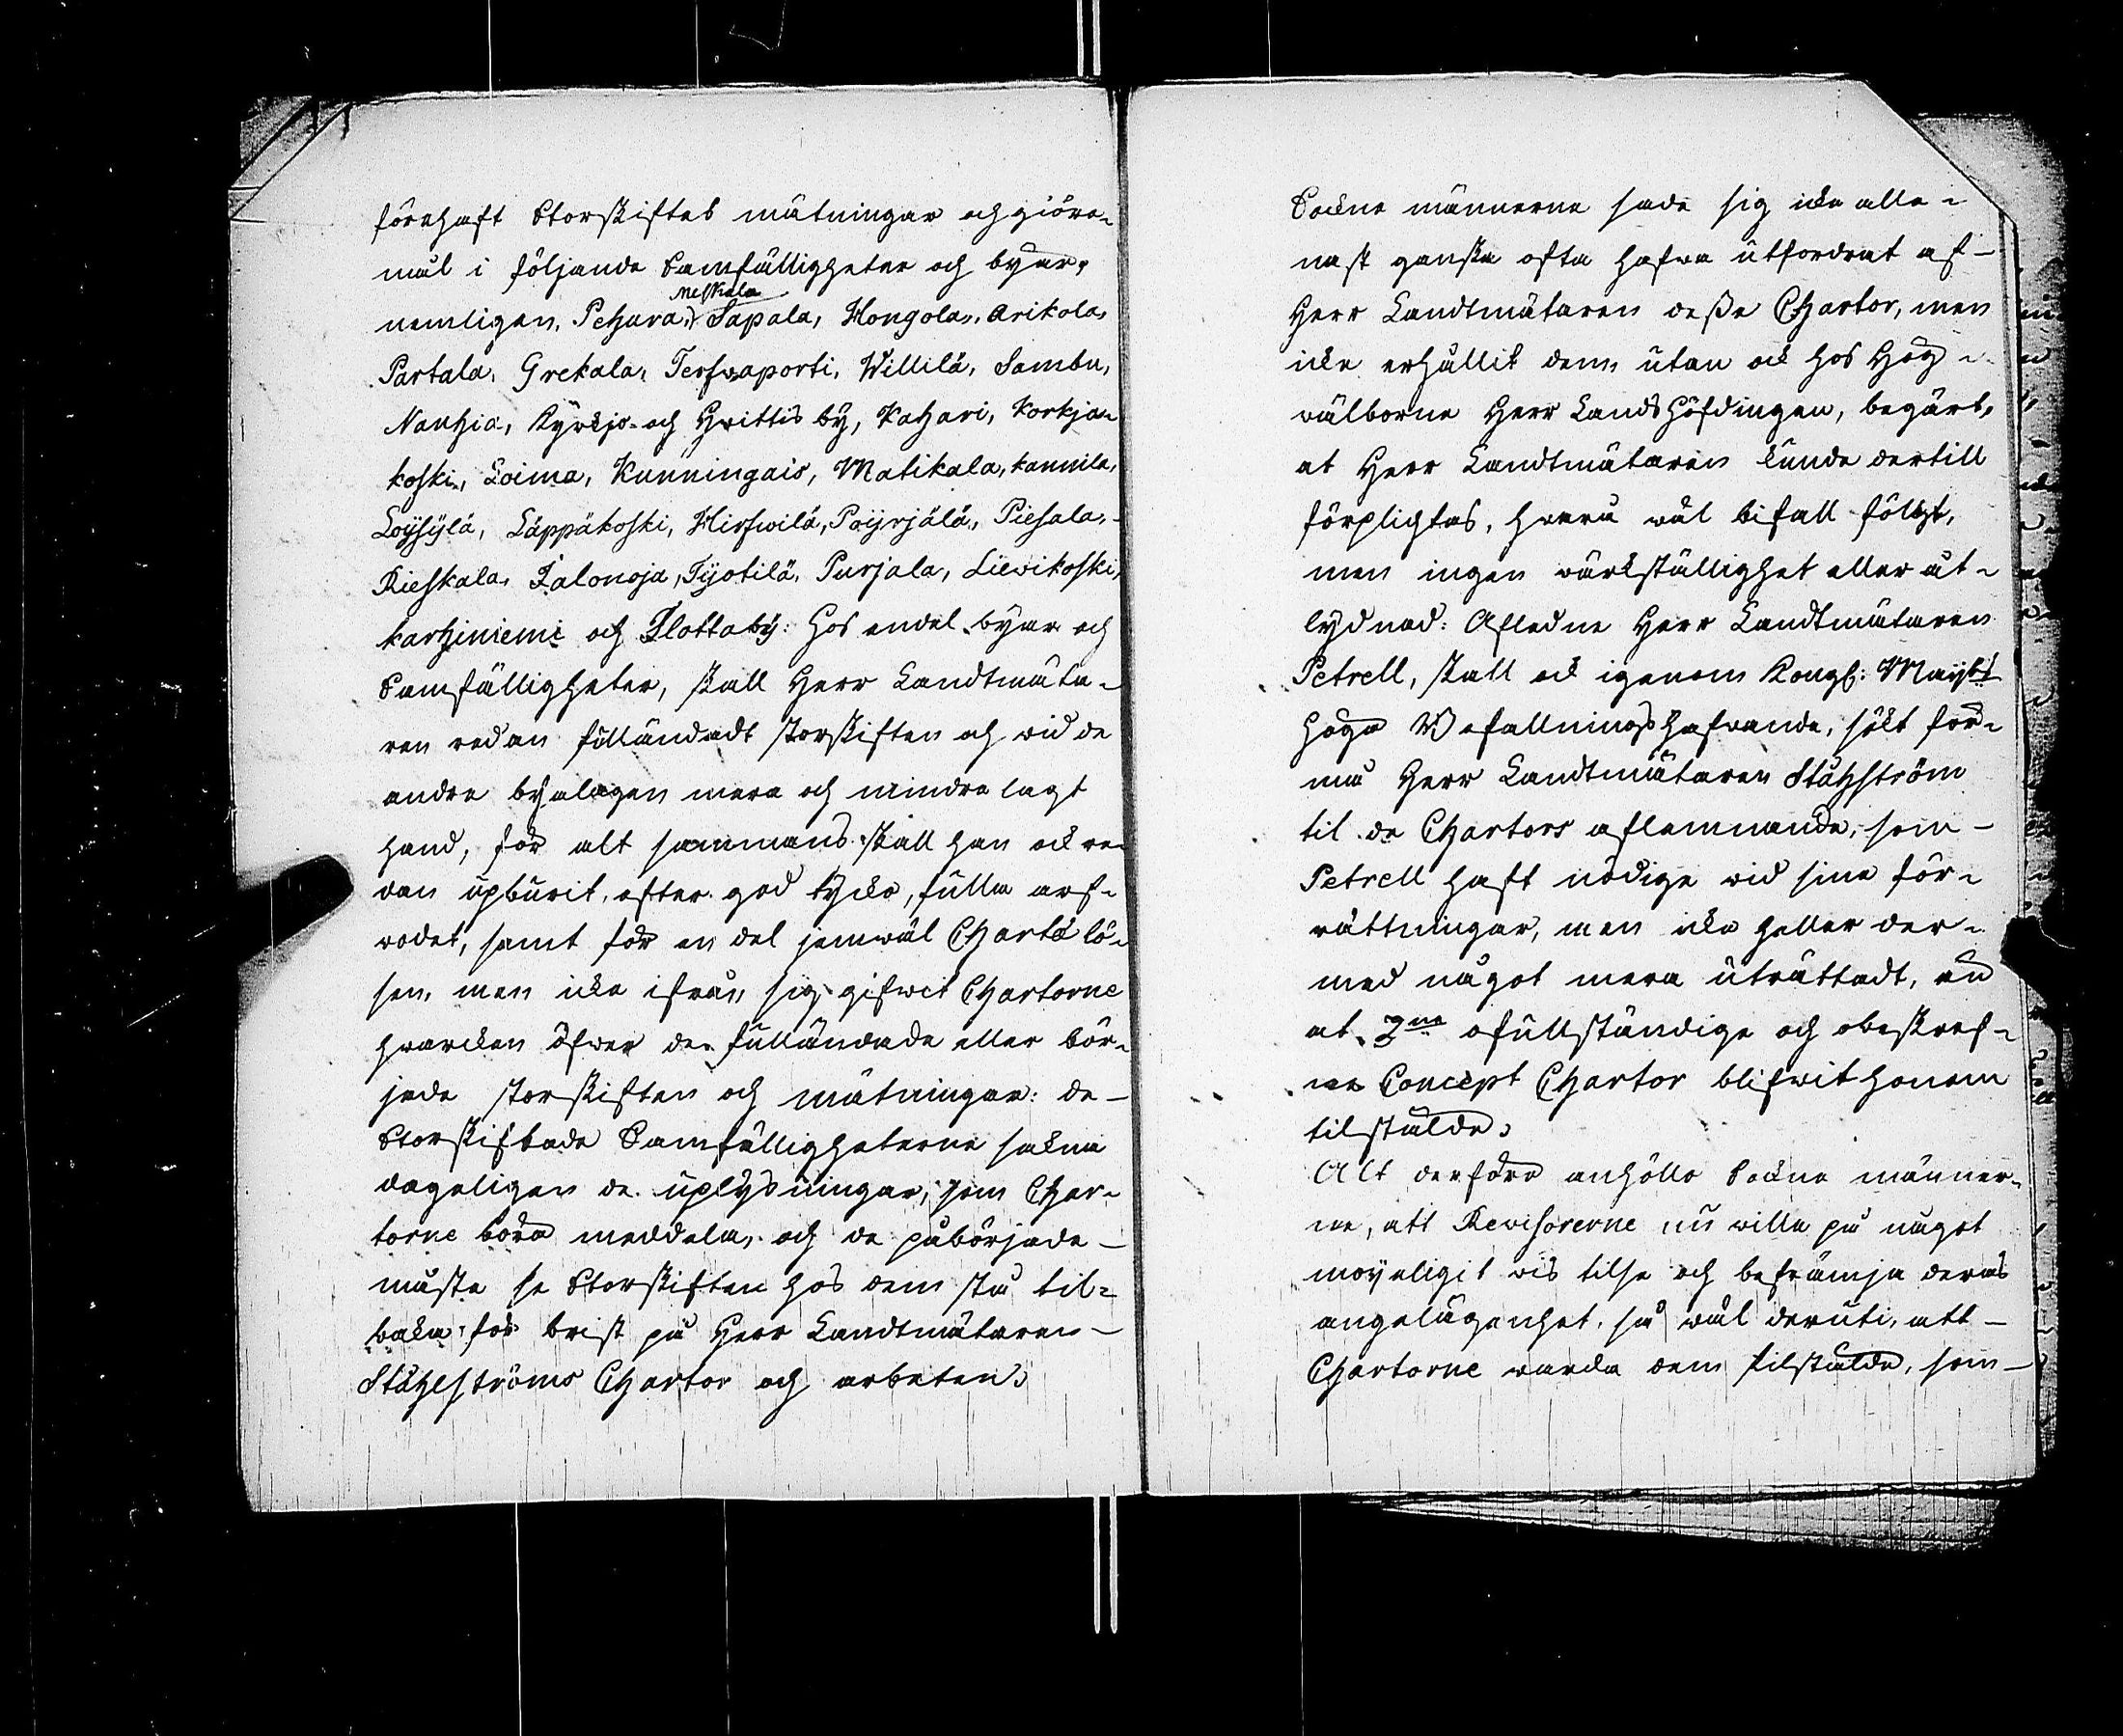 förehaft Storskiftes mätningar och giöre-
mål i följande Samfälligheter och byar,
Meskala
nemligen, Pehura, Sapala, Hongola, Arikola,
Partala, Grekala, Terfwaporti, Willilä, Sambu,
Nanhia, Kyrkjo- och Hvittis by, Kahari, Korkja-
koski, Loima, Kunningais, Matikala, Kannila,
Loysylä, Läppäkoski, Hirfwilä, Poyrjälä, Piesala,
Rieskala, Jalonoja, Tyotilä, Purjala, Liewikoski,
Karhiniemi och Slottaby: hos endel byar och
Samfälligheter, skall Herr Landtmäta-
ren redan fulländadt storskiften och wid de
andre byalagen mera och mindre lagt
hand, för alt sammans skall han ock re-
dan upburit, efter god tycko, fulla arf-
wodet, samt för en del jemwäl Charta lö-
sen, men icke ifrån sig gifwet Chartorne
hwarcken öfwer de fulländade eller bör-
jade storskiften och mätningar: de
Storskiftade Samfälligheterne sakna
dageligen de uplysningar, som Char-
torne böra meddela, och de påbörjade
måste se Storskiften hos dem stå til-
baka för brist på Herr Landtmätaren
Ståhlströms Chartor och arbeten.
Sockne männerne sade sig icke alle-
nast ganska ofta hafwa utfordrat af
Herr Landtmätaren deße Chartor, men
icke erhållit dem, utan ock hos Hög-
wälborne Herr Landshöfdingen, begärt,
at Herr Landtmätaren kunde dertill
förplichtas, hvaru wäl bifall följgt,
men ingen wärkställighet eller åt-
lydnad: Afledne Herr Landtmätaren
Petrell, skall ock igenom Kongl: Mayts
höga Befallningshafwande, sökt för-
må Herr Landtmätaren Ståhlström
til de Chartors aflemnande, som
Petrell haft nödige wid sine för-
rättningar, men icke heller der-
med något mera uträttadt, än
at 2ne ofullständige och obeskref-
ne Concept Chartor blifwit honom
tilstälde.
Alt derföre anhöllo Sockne männer-
ne, att Rewisorerne nu wille på något
moyeligit wis tilse och befrämja deras
angelägenhet, så wäl deruti, att
Chartorne warda dem tilstälde, som